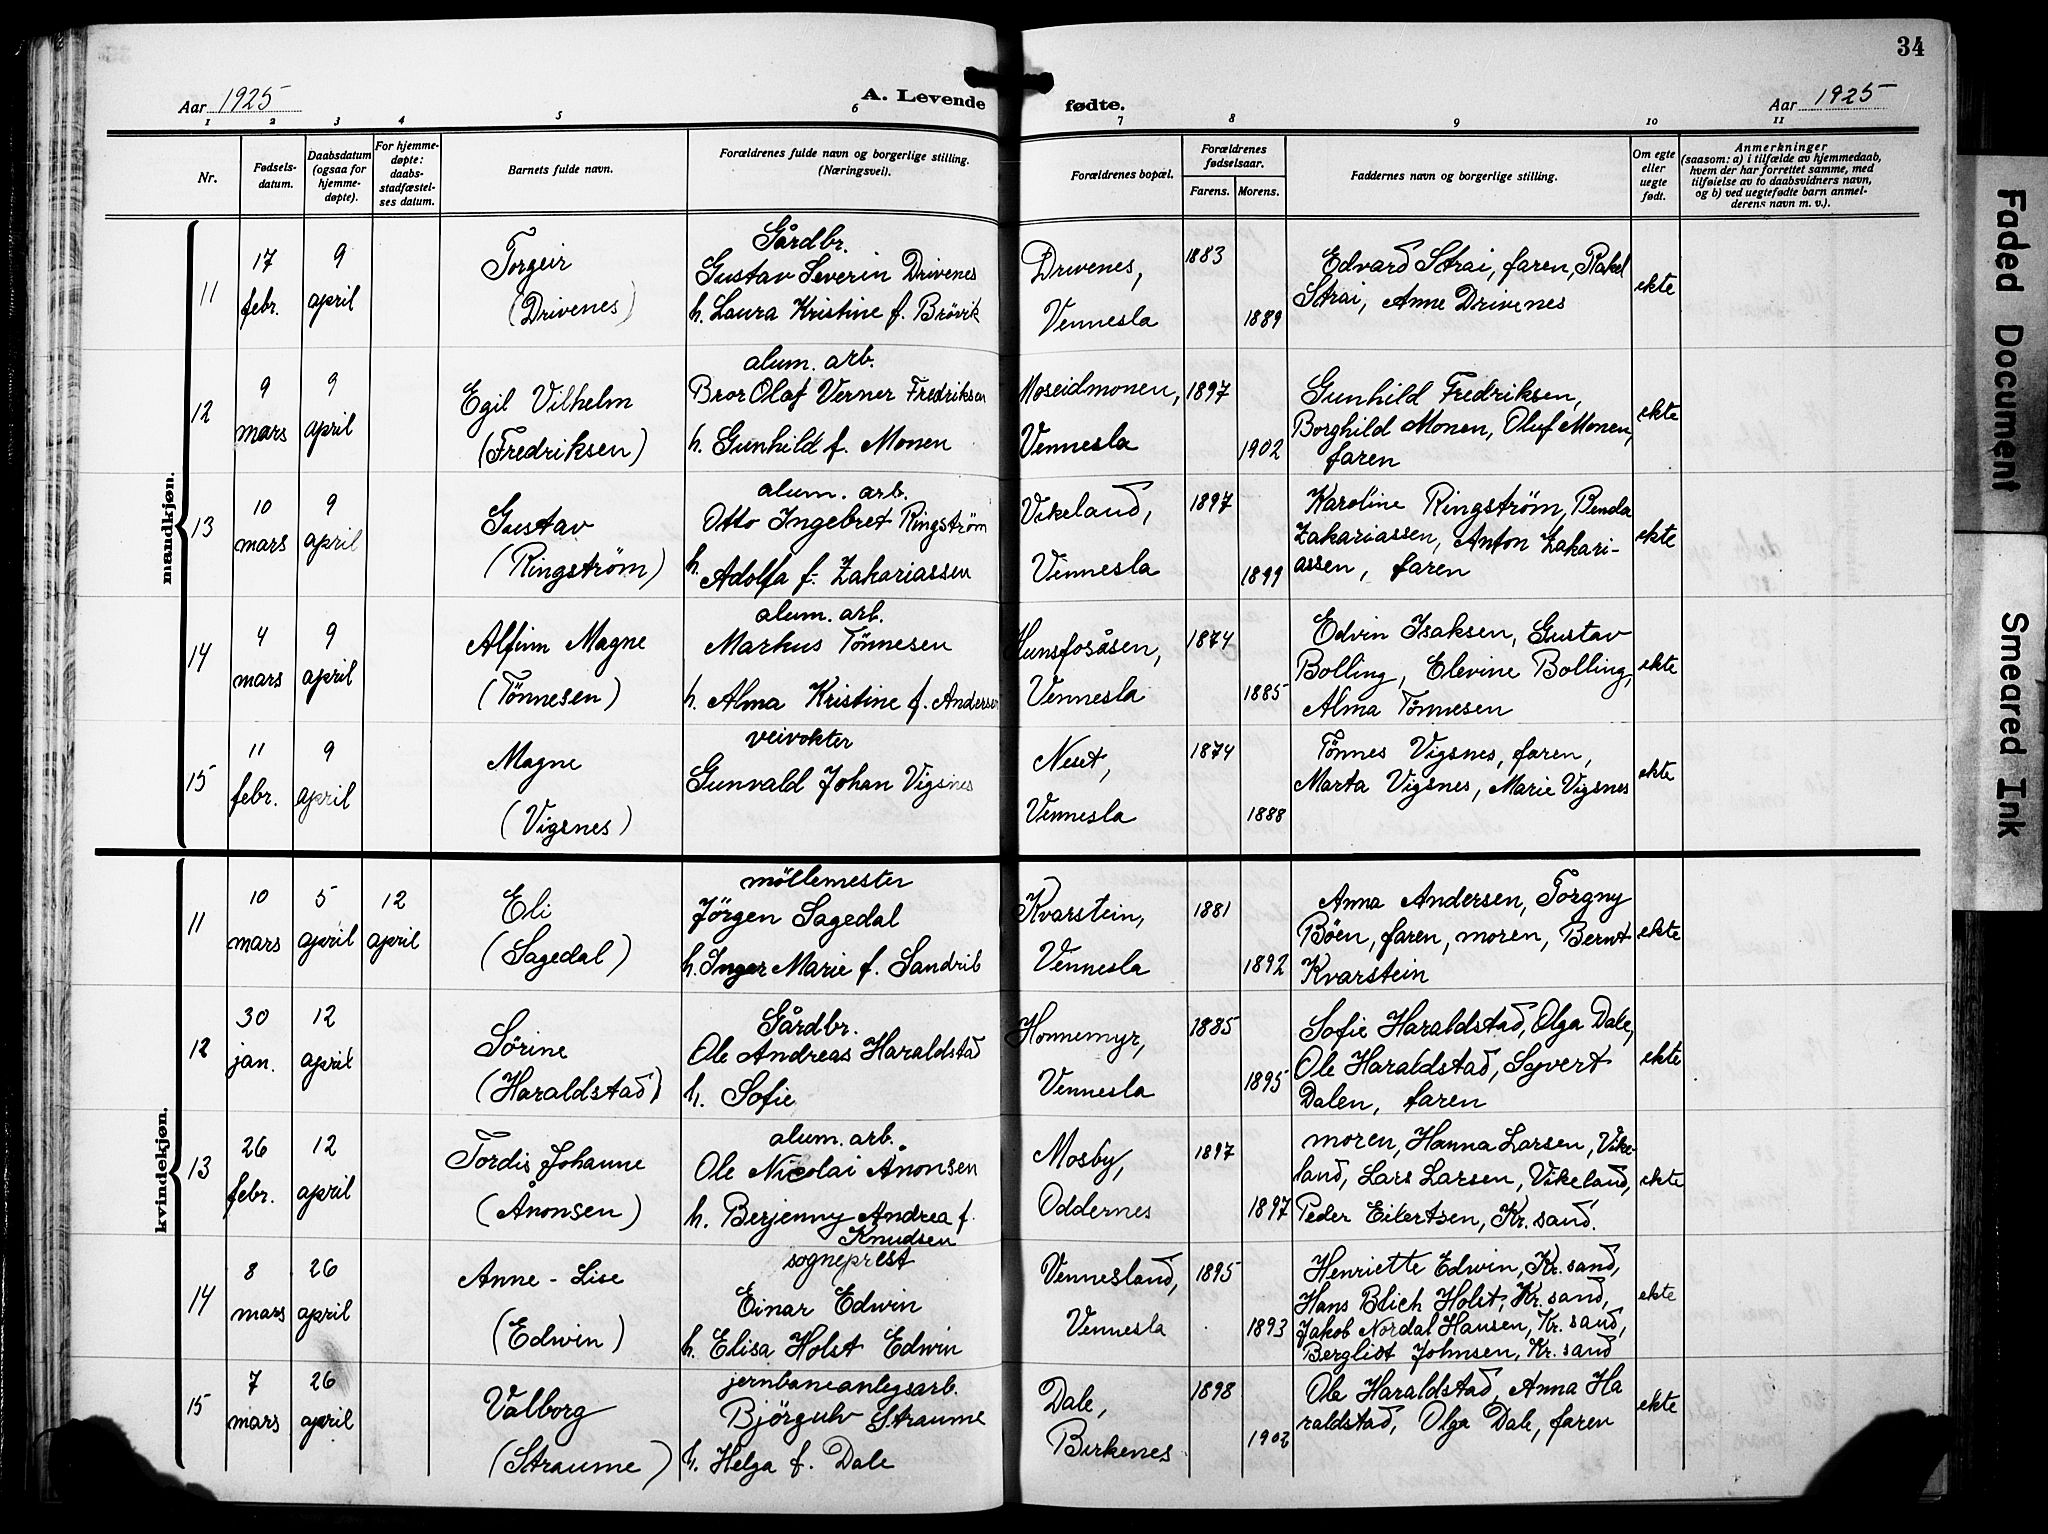 34
Aar 1925
A. Levende fødte.
Aar 1925
1 2 3 4 5 6 7 8 9 10 11
Nr.
Fødsels-
datum.
Daabsdatum
(ogsaa for
hjemme-
døpte).
For hjemme-
døpte:
daabs-
stadfæstel-
ses datum.
Barnets fulde navn.
Forældrenes fulde navn og borgerlige stilling.
(Næringsvei).
Forældrenes bopæl.
Forældrenes
fødselsaar.
Farens. Morens.
Faddernes navn og borgerlige stilling.
Om egte
eller
uegte
født.
Anmerkninger
(saasom: a) i tilfælde av hjemmedaab,
hvem der har forrettet samme, med
tilføielse av to daabsvidners navn,
og b) ved uegtefødte barn anmel-
derens navn m. v.).
maandkjøn.
11
17
febr.
9
april
Torgeir
(Drivenes)
Gårdbr.
Gustav Severin Drivenes
h. Laura Kristine f. Brøvik
Drivenes,
Vennesla
1883
1889
Edvard Strai, faren, Rakel
Strai, Anne Drivenes
ekte
12
9
mars
9
april
Egil Vilhelm
(Fredriksen)
alum. arb.
Bror Olaf Verner Fredriksen
h. Gunhild f. Monen
Moseidmonen,
Vennesla
1897
1902
Gunhild Fredriksen,
Borghild Monen, Oluf Monen,
faren
ekte
13
10
mars
9
april
Gustav
(Ringstrøm)
alum. arb.
Otto Ingebret Ringstrøm
h. Adolfa f. Zakariassen
Vikeland,
Vennesla
1897
1899
Karoline Ringstrøm, Benda
Zakariassen, Anton Zakari-
assen, faren
ekte
14
4
mars
9
april
Alfinn Magne
(Tønnesen)
alum. arb.
Markus Tønnesen
h. Alma Kristine f. Andersen
Hunsfosåsen,
Vennesla
1874
1885
Edvin Isaksen, Gustav
Bolling, Elevine Bolling,
Alma Tønnesen
ekte
15
11
febr.
9
april
Magne
(Vigsnes)
veivokter
Gunvald Johan Vigsnes
Neset,
Vennesla
1874
1888
Tønnes Vigsnes, faren,
Marta Vigsnes, Marie Vigsnes
ekte
kvindekjøn.
11
10
mars
5
april
12
april
Eli
(Sagedal)
møllemester
Jørgen Sagedal
h. Inger Marie f. Sandrib
Kvarstein,
Vennesla
1881
1892
Anna Andersen, Torgny
Bøen, faren, moren, Bernt
Kvarstein
ekte
12
30
jan.
12
april
Sørine
(Haraldstad)
Gårdbr.
Ole Andreas Haraldstad
h. Sofie
Honnemyr,
Vennesla
1885
1895
Sofie Haraldstad, Olga Dale,
Ole Haraldstad, Syvert
Dalen, faren
ekte
13
26
febr.
12
april
Tordis Johanne
(Ånonsen)
alum. arb.
Ole Nicolai Ånonsen
h. Berjenny Andrea f.
Knudsen
Mosby,
Oddernes
1897
1897
moren, Hanna Larsen, Vike-
land, Lars Larsen, Vikeland,
Peder Eilertsen, Kr.sand.
ekte
14
8
mars
26
april
Anne-Lise
(Edwin)
sogneprest
Einar Edwin
h. Elisa Holst Edwin
Vennesland,
Vennesla
1895
1893
Henriette Edwin, Kr.sand,
Hans Blich Holst, Kr.sand,
Jakob Nordal Hansen, Kr.sand,
Berglidt Johnsen, Kr.sand
ekte
15
7
mars
26
april
Valborg
(Straume)
jernbaneanlegsarb.
Bjørgulv Straume
h. Helga f. Dale
Dale,
Birkenes
1898
1902
Ole Haraldstad, Anna Ha
raldstad, Olga Dale, faren
ekte
Faded Document
Smeared Ink